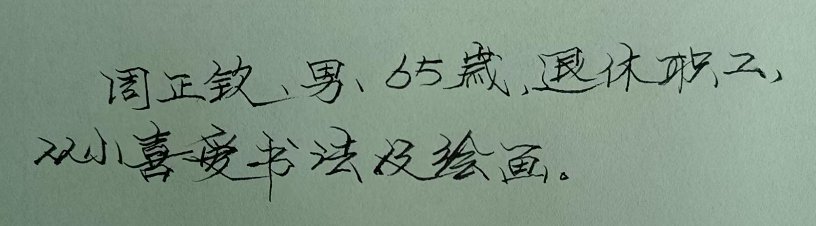 周正钦、男、65歳,退休职工,
从小喜爱书法及绘画。